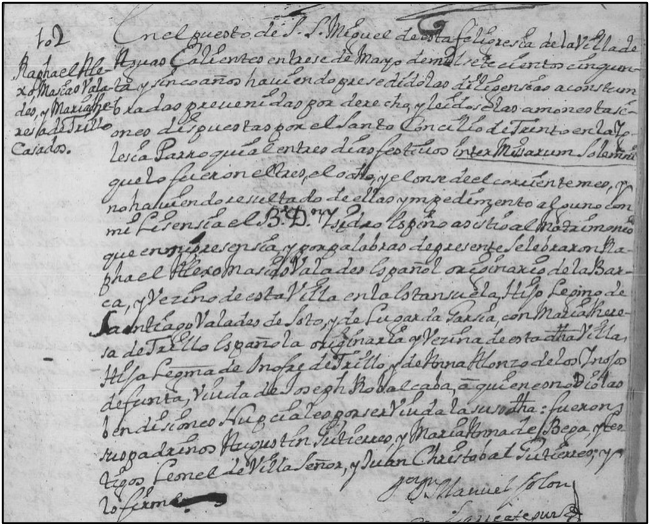 102
Raphael Ale-
xo Mascio Valda-
des, y Maria The-
resa de Trillo
Casados.
En el puesto de S. S. Miguel de esta feligresia de la Villa de
Aguas Calientes en trese de Mayo de mil setecientos cinquen-
ta y sinco años haviendo presedido las dilijensias acostum
bradas prevenidas por derecho, y leidose las amonestasi-
ones dispuestas por el Santo Concilio de Trento en la Yg-
lesia Parroquial en tres dias festivos inter Missarum Solemnia
que lo fueron el tres, el ocho, y el onse de el corriente mes, y
no haviendo resultado de ellas ympedimento alguno con
mi Lisensia el Br. Dn. Ysidro Espino asistio al Matrimonio
que en mi presensia y por palabras de presente selebraron Ra-
phael Alexo Mascio Valades Español originario de la Bar-
ca, y Vezino de esta Villa en la Estansuela, Hijo Legmo de
Santiago Valades de Soto, y de Lugarda Garsia, con Maria There-
sa de Trillo Española originaria y Vezina de esta dha Villa,
Hija Legma de Onofre de Trillo, y de Anna Alonzo de los Ynojos
defunta, Viuda de Joseph Robalcaba, a quien e no dio las
bendisiones Nupciales por ser Viuda la susodha: fueron
sus padrinos Augustin Gutierres, y Maria Anna de Bega, y tes-
tigos Leonel de Villa Señor, y Juan Christobal Gutierres; y
lo firme
Manuel Colon